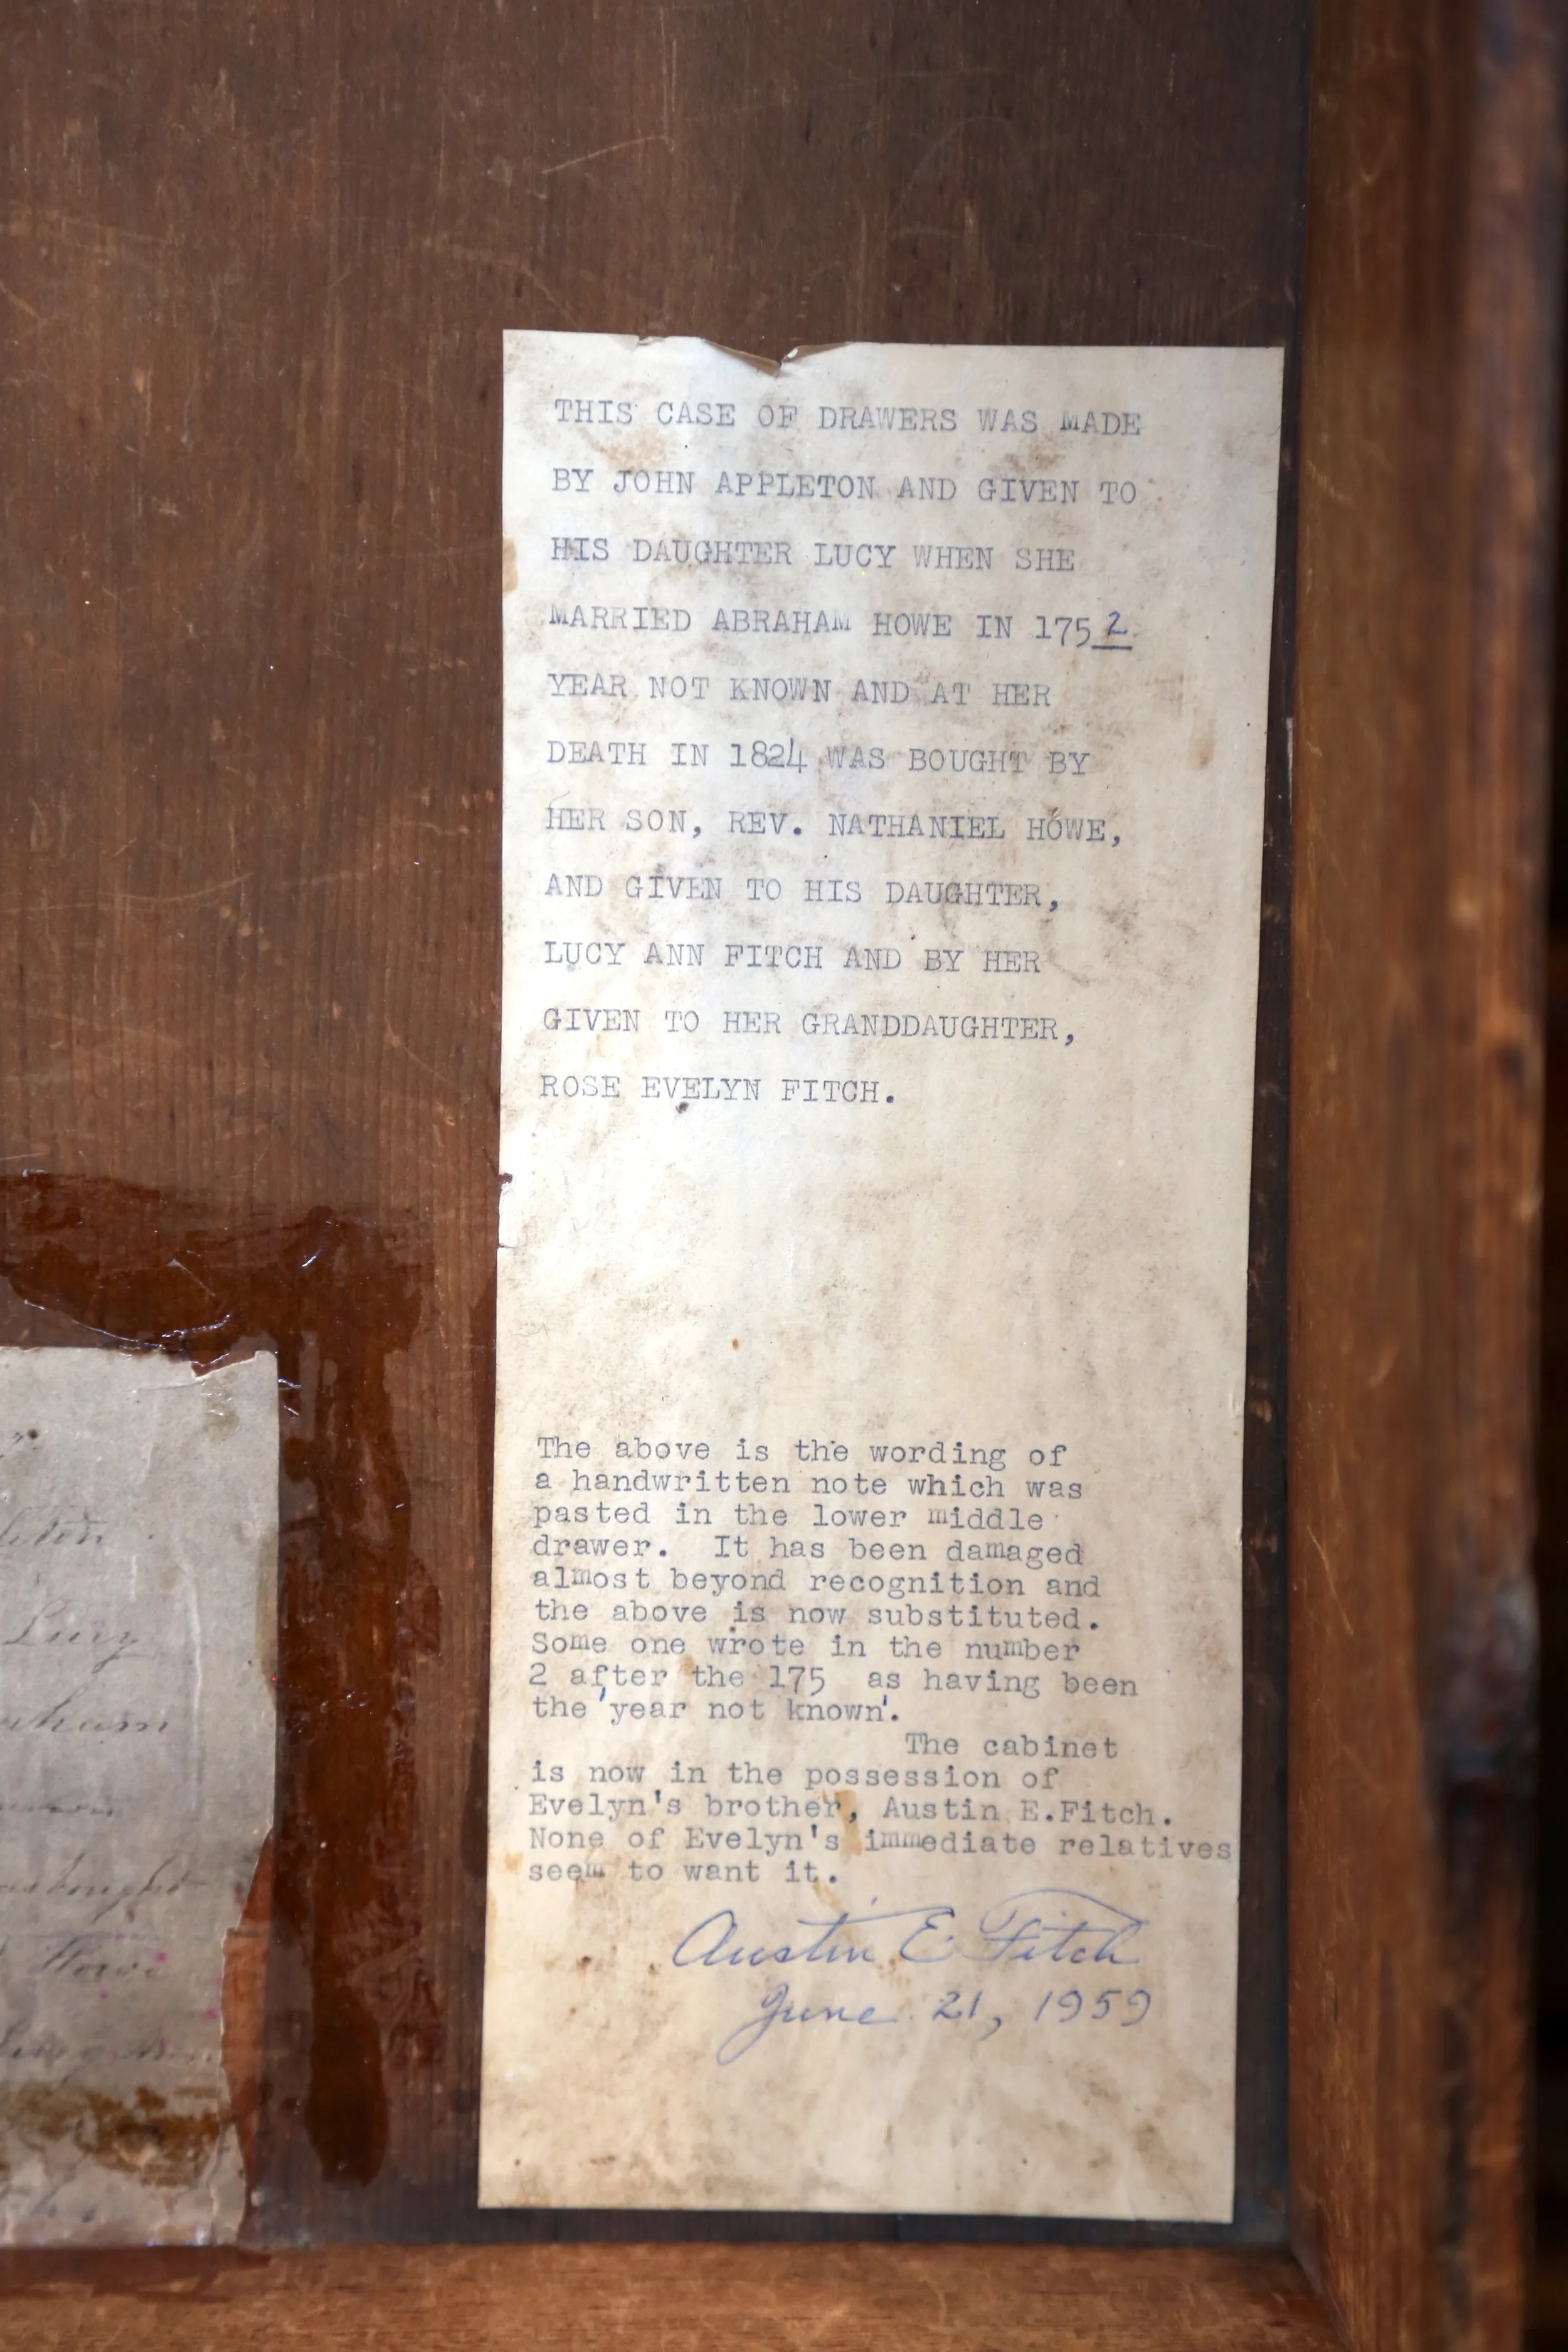 THIS CASE OF DRAWERS WAS MADE
BY JOHN APPLETON AND GIVEN TO
HIS DAUGHTER LUCY WHEN SHE
MARRIED ABRAHAM HOWE IN 175 2
YEAR NOT KNOWN AND AT HER
DEATH IN 1824 WAS BOUGHT BY
HER SON, REV. NATHANIEL HOWE,
AND GIVEN TO HIS DAUGHTER,
LUCY ANN FITCH AND BY HER
GIVEN TO HER GRANDDAUGHTER,
ROSE EVELYN FITCH.
The above is the wording of
a handwritten note which was
pasted in the lower middle
drawer. It has been damaged
almost beyond recognition and
the above is now substituted.
Some one wrote in the number
2 after the 175 as having been
the 'year not known'.
The cabinet
is now in the possession of
Evelyn's brother, Austin E.Fitch.
None of Evelyn's immediate relatives
seem to want it.
Austin E. Fitch
June 21, 1959
Lucy
Howe